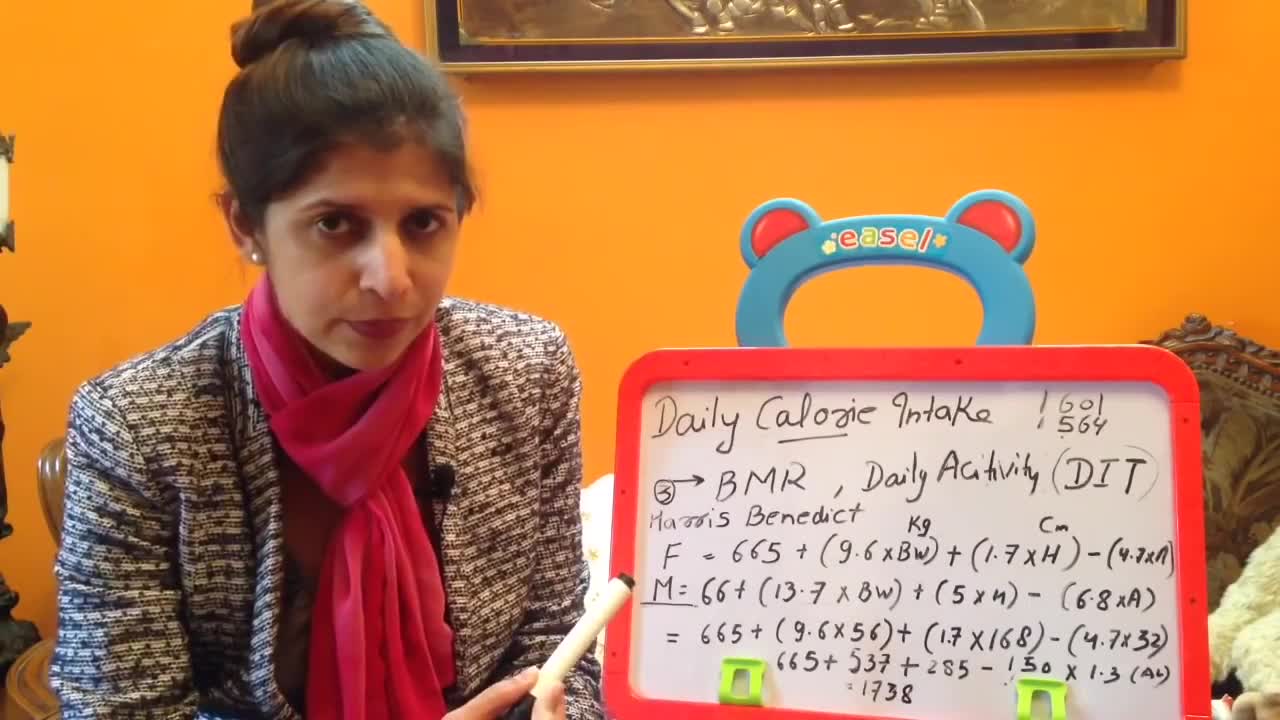 easel
Daily Calorie Intake 1601
564
③→ BMR , Daily Acitivity (DIT)
Harris Benedict Kg Cm
F = 665 + (9.6 x BW) + (1.7 x H) - (4.7 x A)
M = 66 + (13.7 x BW) + (5 x H) - (6.8 x A)
= 665 + (9.6 x 56) + (1.7 x 168) - (4.7 x 32)
665 + 537 + 285 - 150 x 1.3 (AL)
= 1738